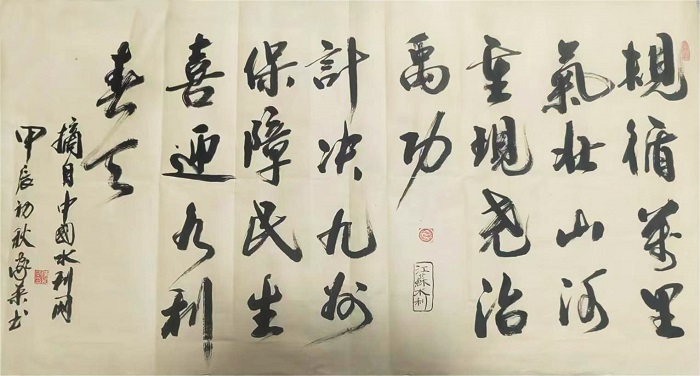 規循萬里
氣壯山河
重現堯治
禹功
計决九州
保障民生
喜迎水利
春天
摘自中國水利网
甲辰初秋
江蘇水利